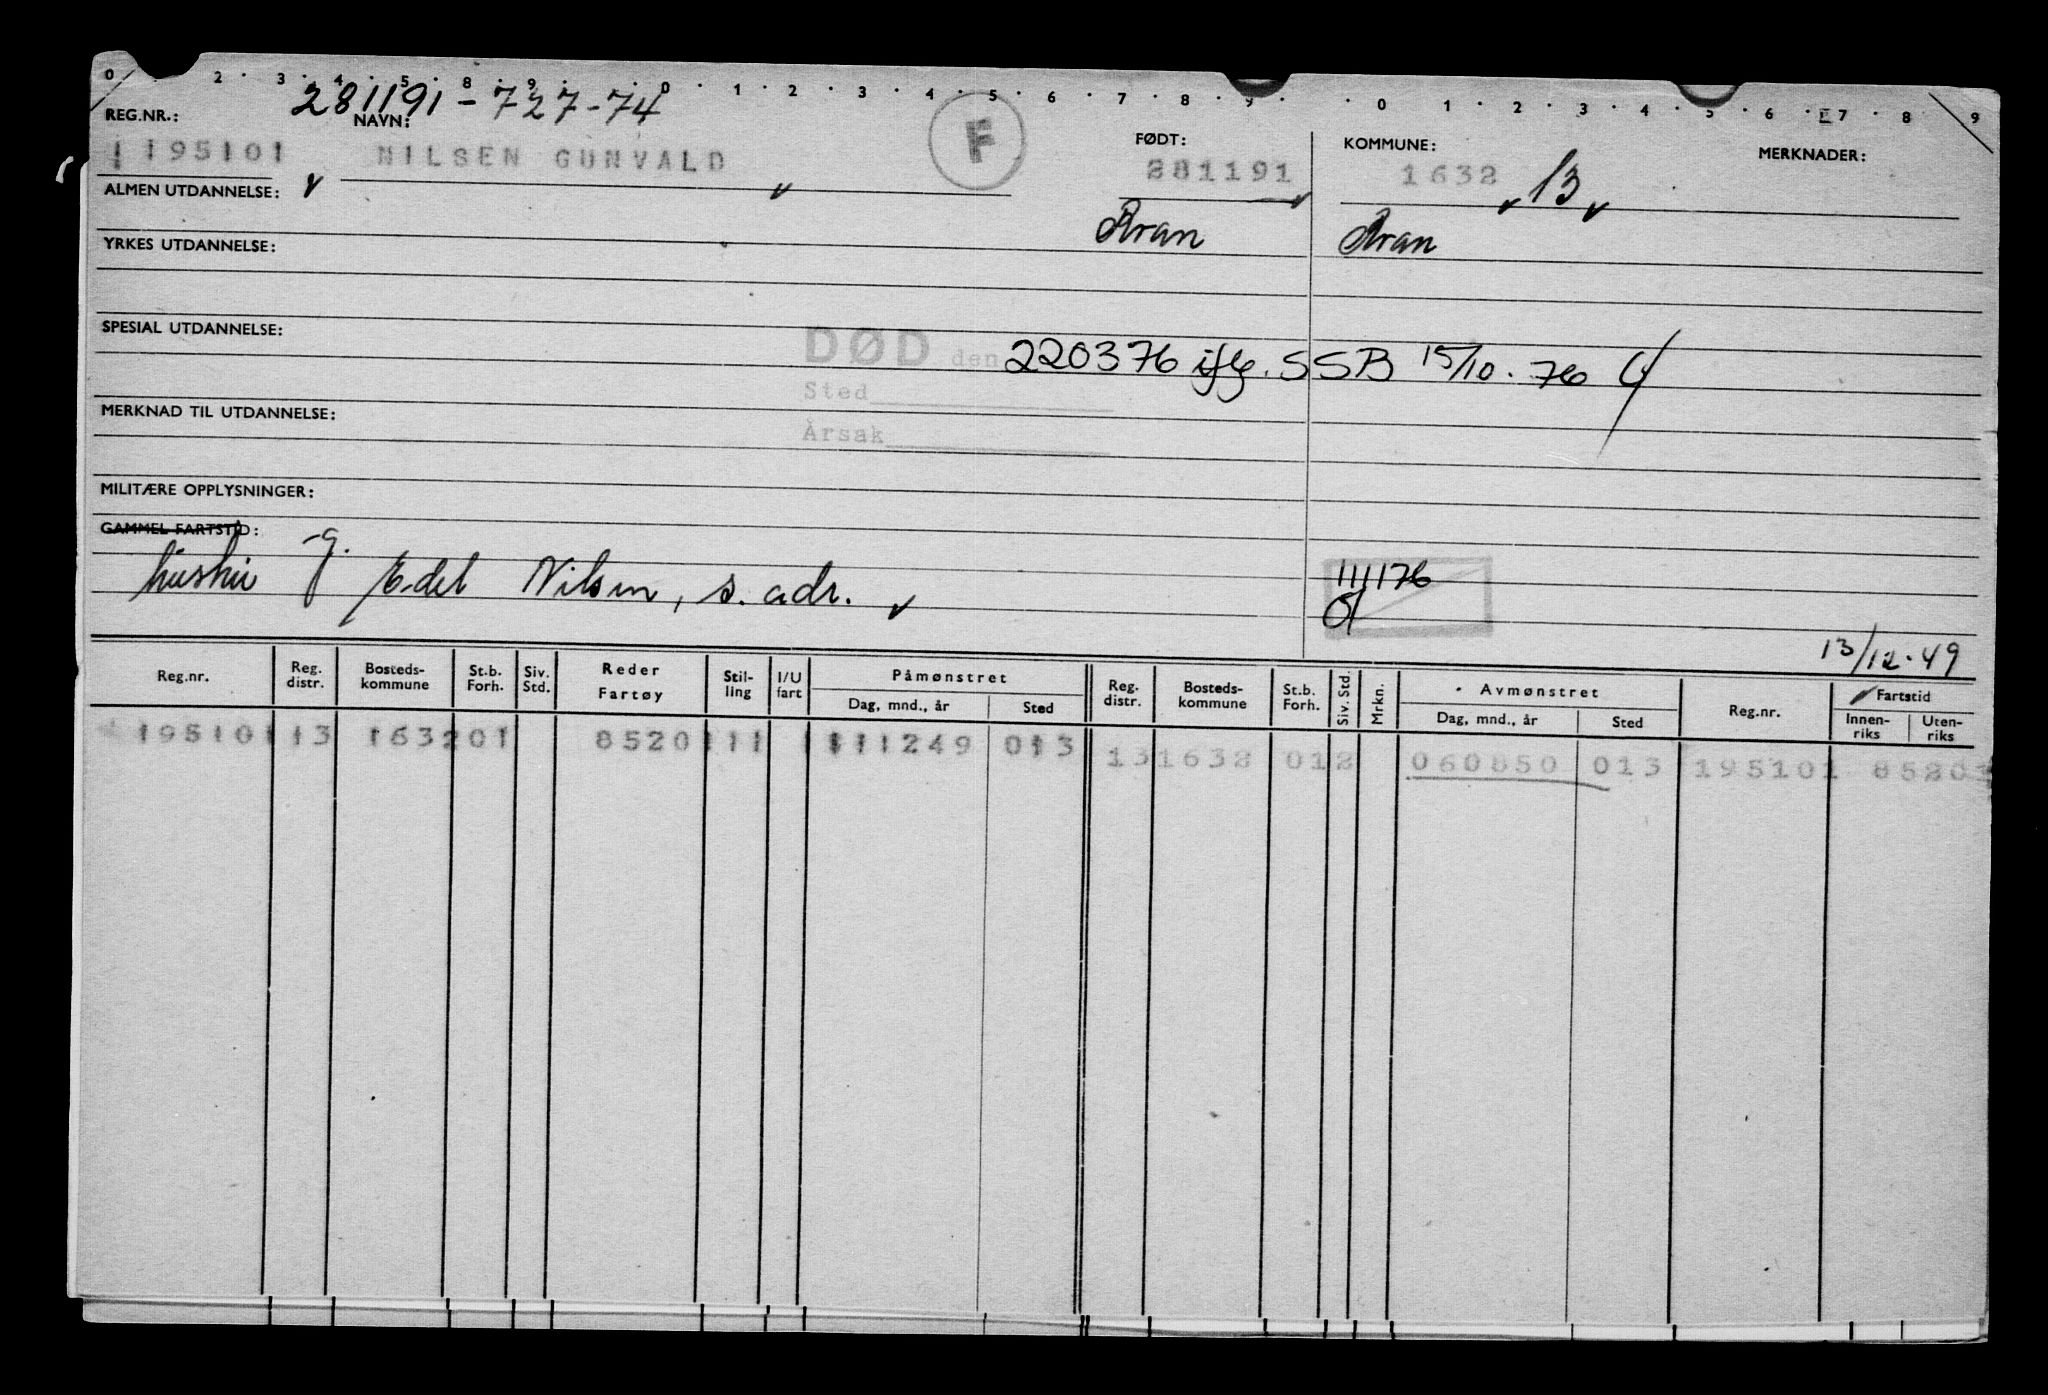 0 2 3 4 5 8 9 0 1 2 3 4 5 6 7 8 9 0 1 2 3 4 5 6 7 8 9
281191-727-74
REG.NR.: NAVN: FØDT: KOMMUNE: MERKNADER:
195101 NILSEN GUNVALD F 281191 1632 13
ALMEN UTDANNELSE:
Åran Åran
YRKES UTDANNELSE:
SPESIAL UTDANNELSE:
DØD den 220376 iflg. SSB 15/10.76
Sted
MERKNAD TIL UTDANNELSE:
Årsak
MILITÆRE OPPLYSNINGER:
GAMMEL FARTSTID:
hustru g. Edel Nilsen, s. adr.
111176
13/12.49
Reg.nr. Reg. distr. Bosteds-kommune St.b. Forh. Siv. Std. Reder Fartøy Stil-ling I/U fart Påmønstret Dag, mnd., år Sted Reg. distr. Bosteds-kommune St.b. Forh. Siv. Std. Mrkn. Avmønstret Dag, mnd., år Sted Reg.nr. Fartstid Innen-riks Uten-riks
195101 13 1632 01 8520 111 1 111249 013 13 1632 012 060850 013 195101 85203